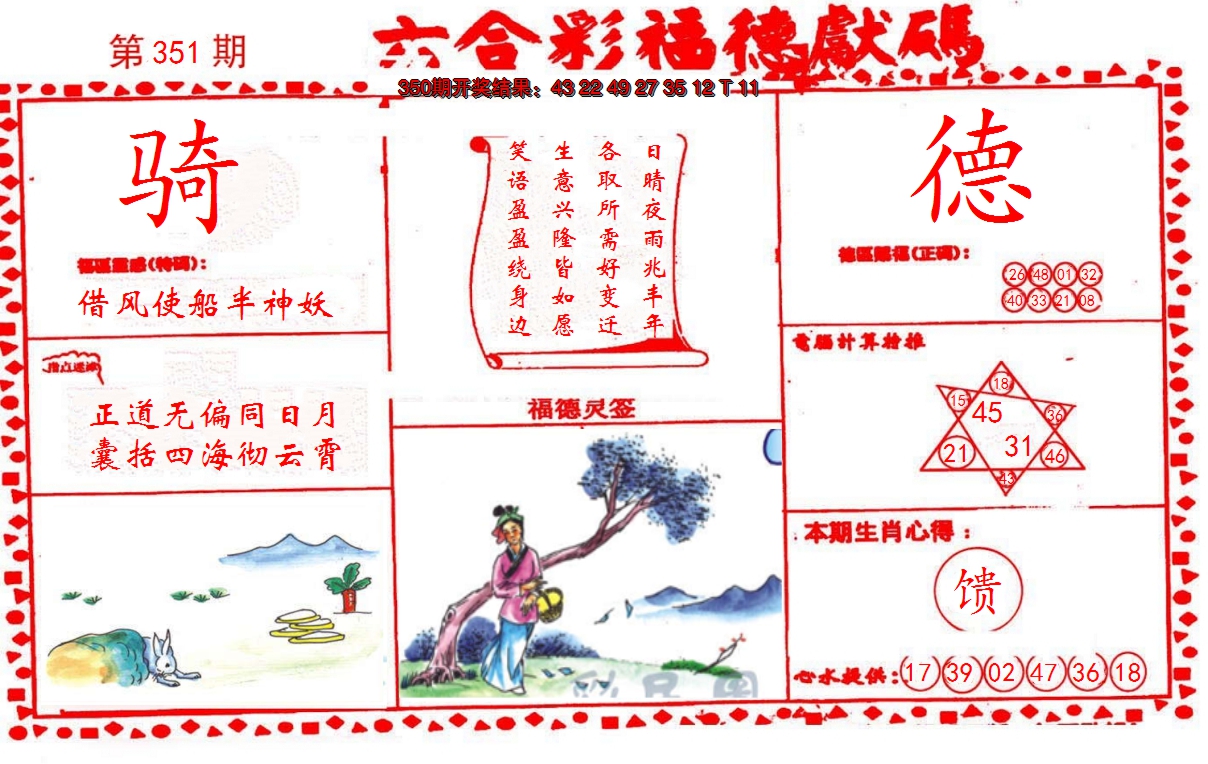 第 351 期
六合彩福德獻碼
350期开奖结果：43 22 49 27 35 12 T 11
骑
福區靈感(特碼)：
借风使船半神妖
指点迷津
正道无偏同日月
囊括四海彻云霄
日晴夜雨兆丰年
各取所需好变迁
生意兴隆皆如愿
笑语盈盈绕身边
福德灵签
彩民图
德
德區賜福(正碼)：
26 48 01 32
40 33 21 08
電腦计算推
18
15 45 36
21 31 46
43
本期生肖心得：
馈
心水提供：17 39 02 47 36 18